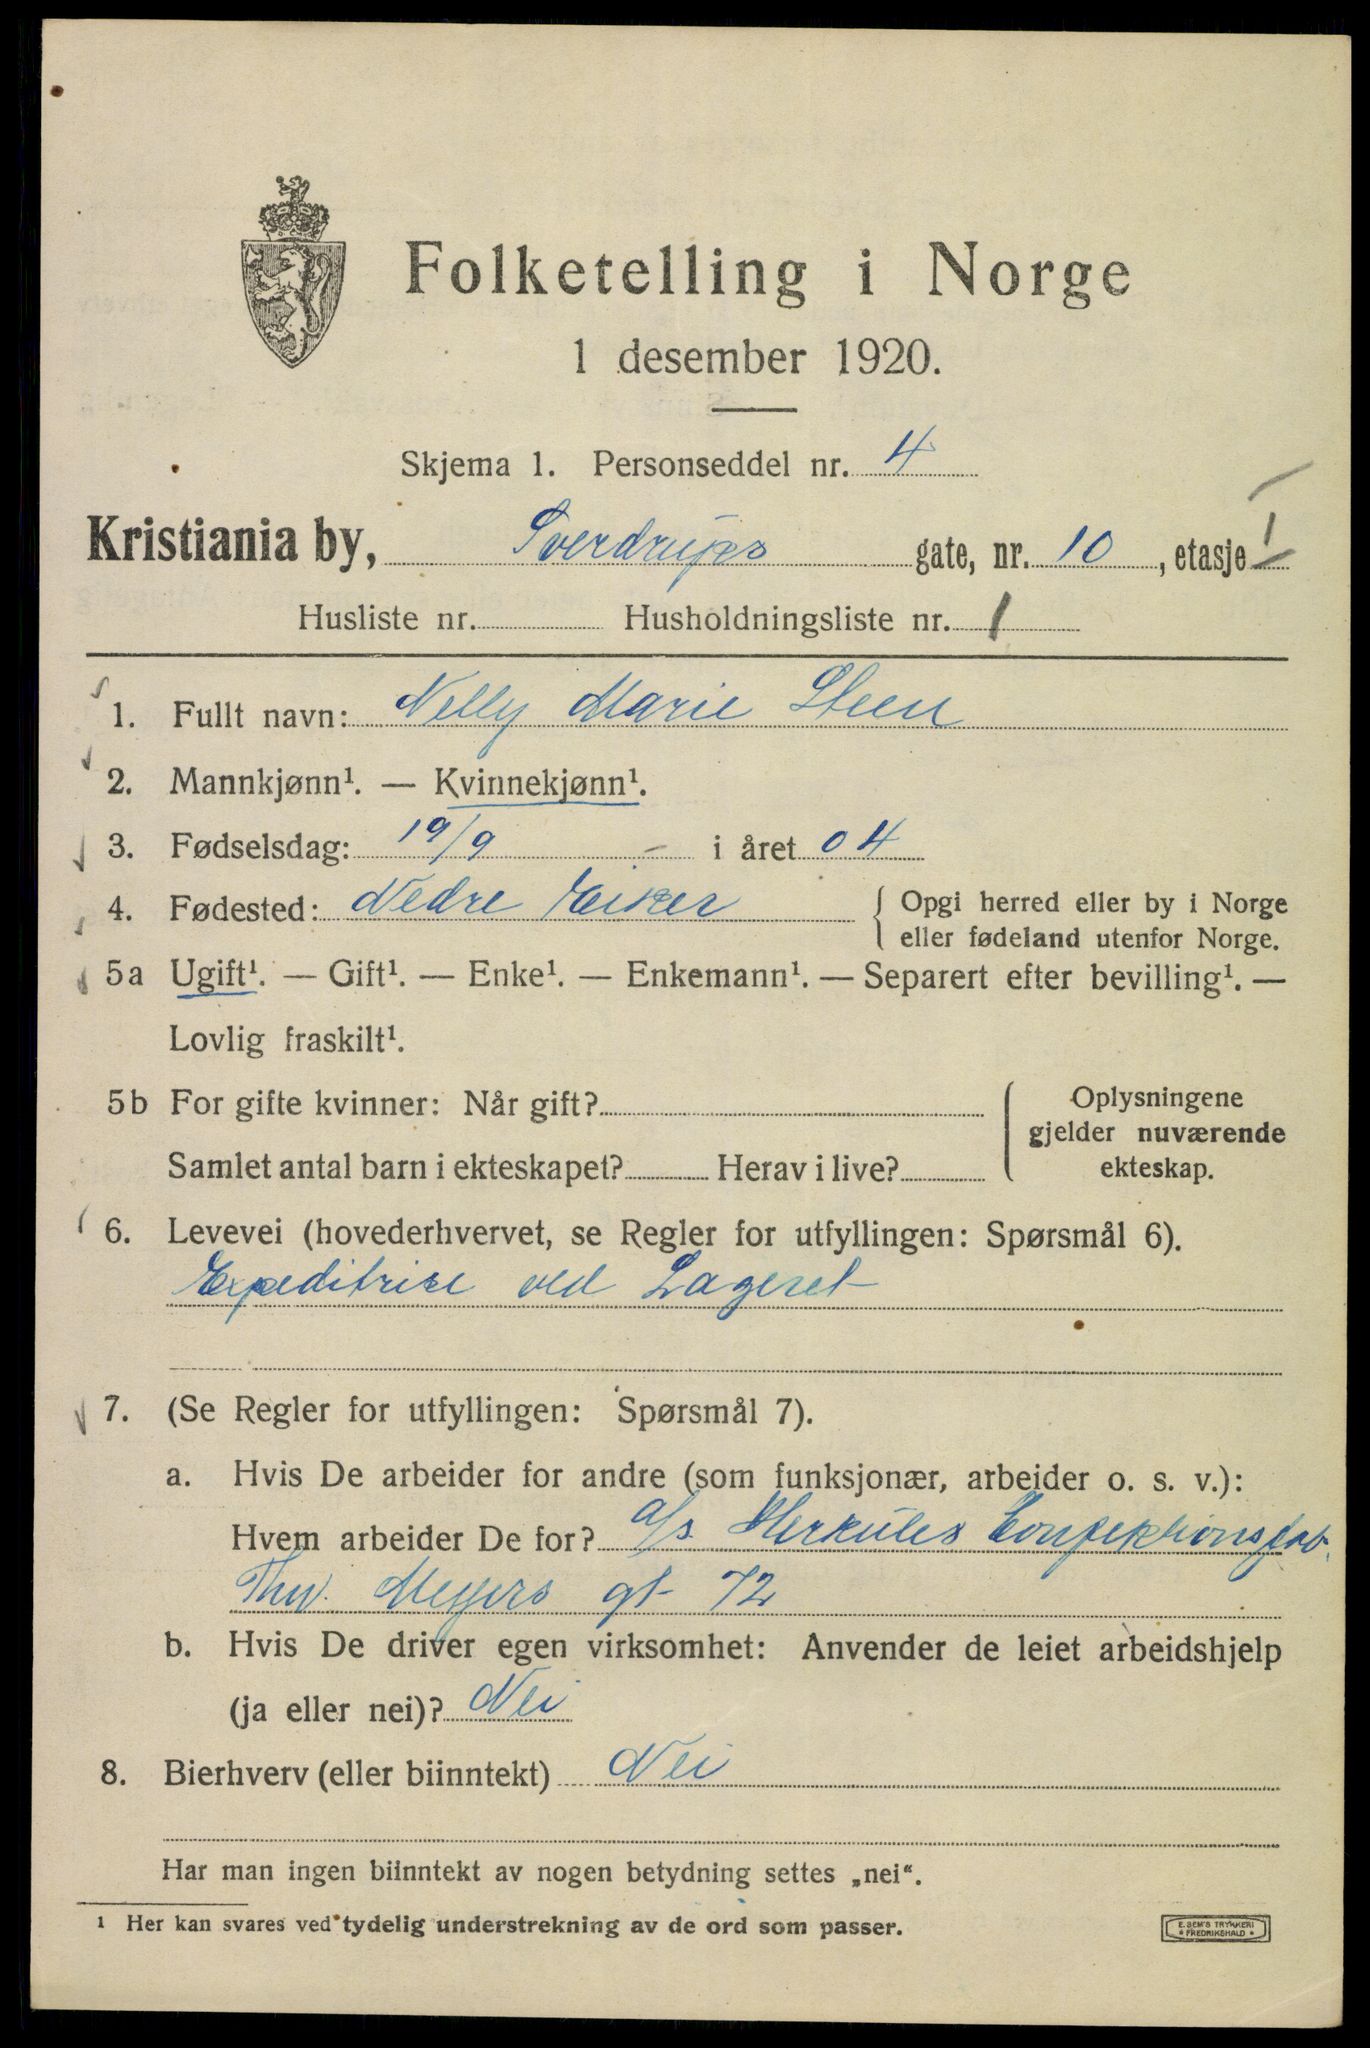 Folketelling i Norge
1 desember 1920.
Skjema 1. Personseddel nr. 4
Kristiania by, Sverdrups gate, nr. 10, etasje I
Husliste nr. Husholdningsliste nr. 1
1. Fullt navn: Nelly Marie Steen
2. Mannkjønn¹. — Kvinnekjønn¹.
3. Fødselsdag: 19/9 i året 04
4. Fødested: Nedre Eiker { Opgi herred eller by i Norge
eller fødeland utenfor Norge.
5a Ugift¹. — Gift¹. — Enke¹. — Enkemann¹. — Separert efter bevilling¹. —
Lovlig fraskilt¹.
5b For gifte kvinner: Når gift?
Samlet antal barn i ekteskapet? Herav i live?
Oplysningene
gjelder nuværende
ekteskap.
6. Levevei (hovederhvervet, se Regler for utfyllingen: Spørsmål 6).
Expeditrise ved Lageret
7. (Se Regler for utfyllingen: Spørsmål 7).
a. Hvis De arbeider for andre (som funksjonær, arbeider o. s. v.):
Hvem arbeider De for? a/s Herkules Confektionsfab.
Thv. Meyers gt 72
b. Hvis De driver egen virksomhet: Anvender de leiet arbeidshjelp
(ja eller nei)? Nei
8. Bierhverv (eller biinntekt) Nei
Har man ingen biinntekt av nogen betydning settes „nei“.
1 Her kan svares ved tydelig understrekning av de ord som passer.
E. SEM'S TRYKKERI
* FREDRIKSHALD *